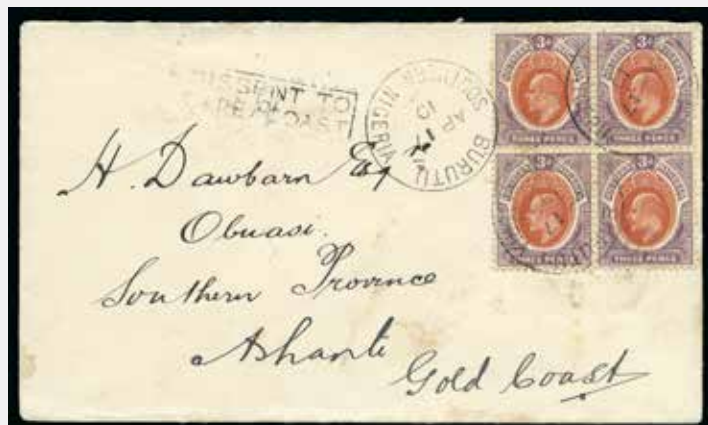 MISSENT TO
CAPE COAST
BURUTU
SOUTHERN NIGERIA
AP 17
10
3d 3d
THREE PENCE THREE PENCE
3d 3d
THREE PENCE THREE PENCE
H. Dawbarn Esqr
Obuasi.
Southern Province
Ashanti
Gold Coast